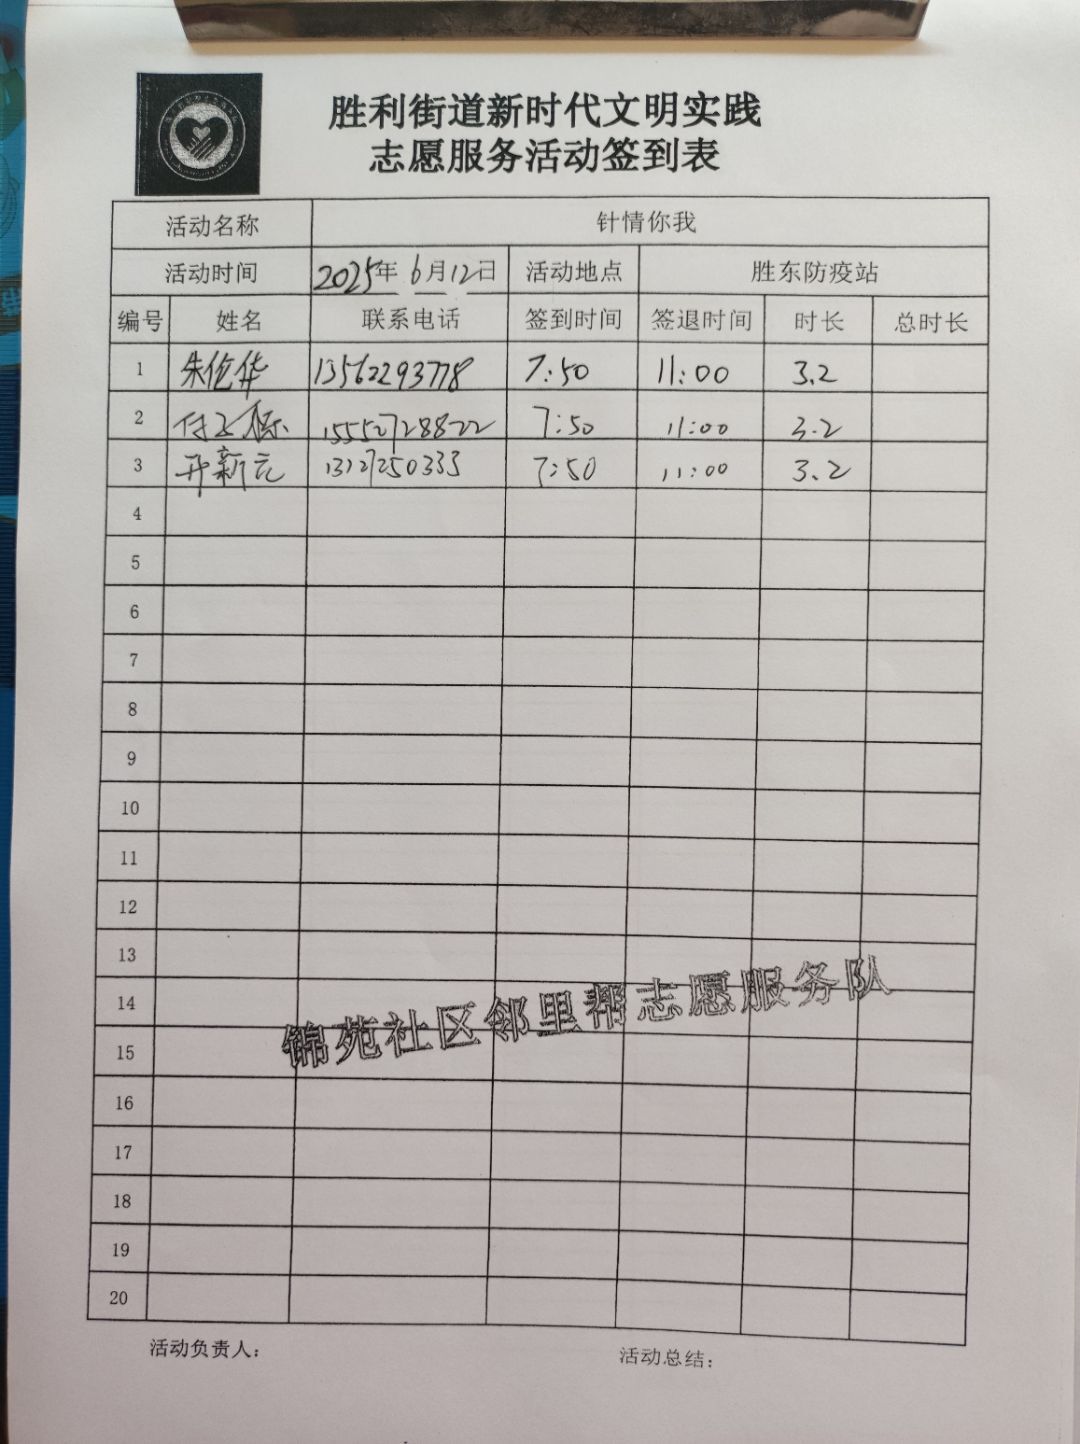 胜利街道新时代文明实践
志愿服务活动签到表
活动名称 针情你我
活动时间 2025年 6月12日 活动地点 胜东防疫站
编号 姓名 联系电话 签到时间 签退时间 时长 总时长
1 朱伦华 13562293778 7:50 11:00 3.2
2 15552728822 7:50 11:00 3.2
3 开新元 13127250333 7:50 11:00 3.2
4
5
6
7
8
9
10
11
12
13
14
15
16
17
18
19
20
锦苑社区邻里帮志愿服务队
活动负责人： 活动总结：